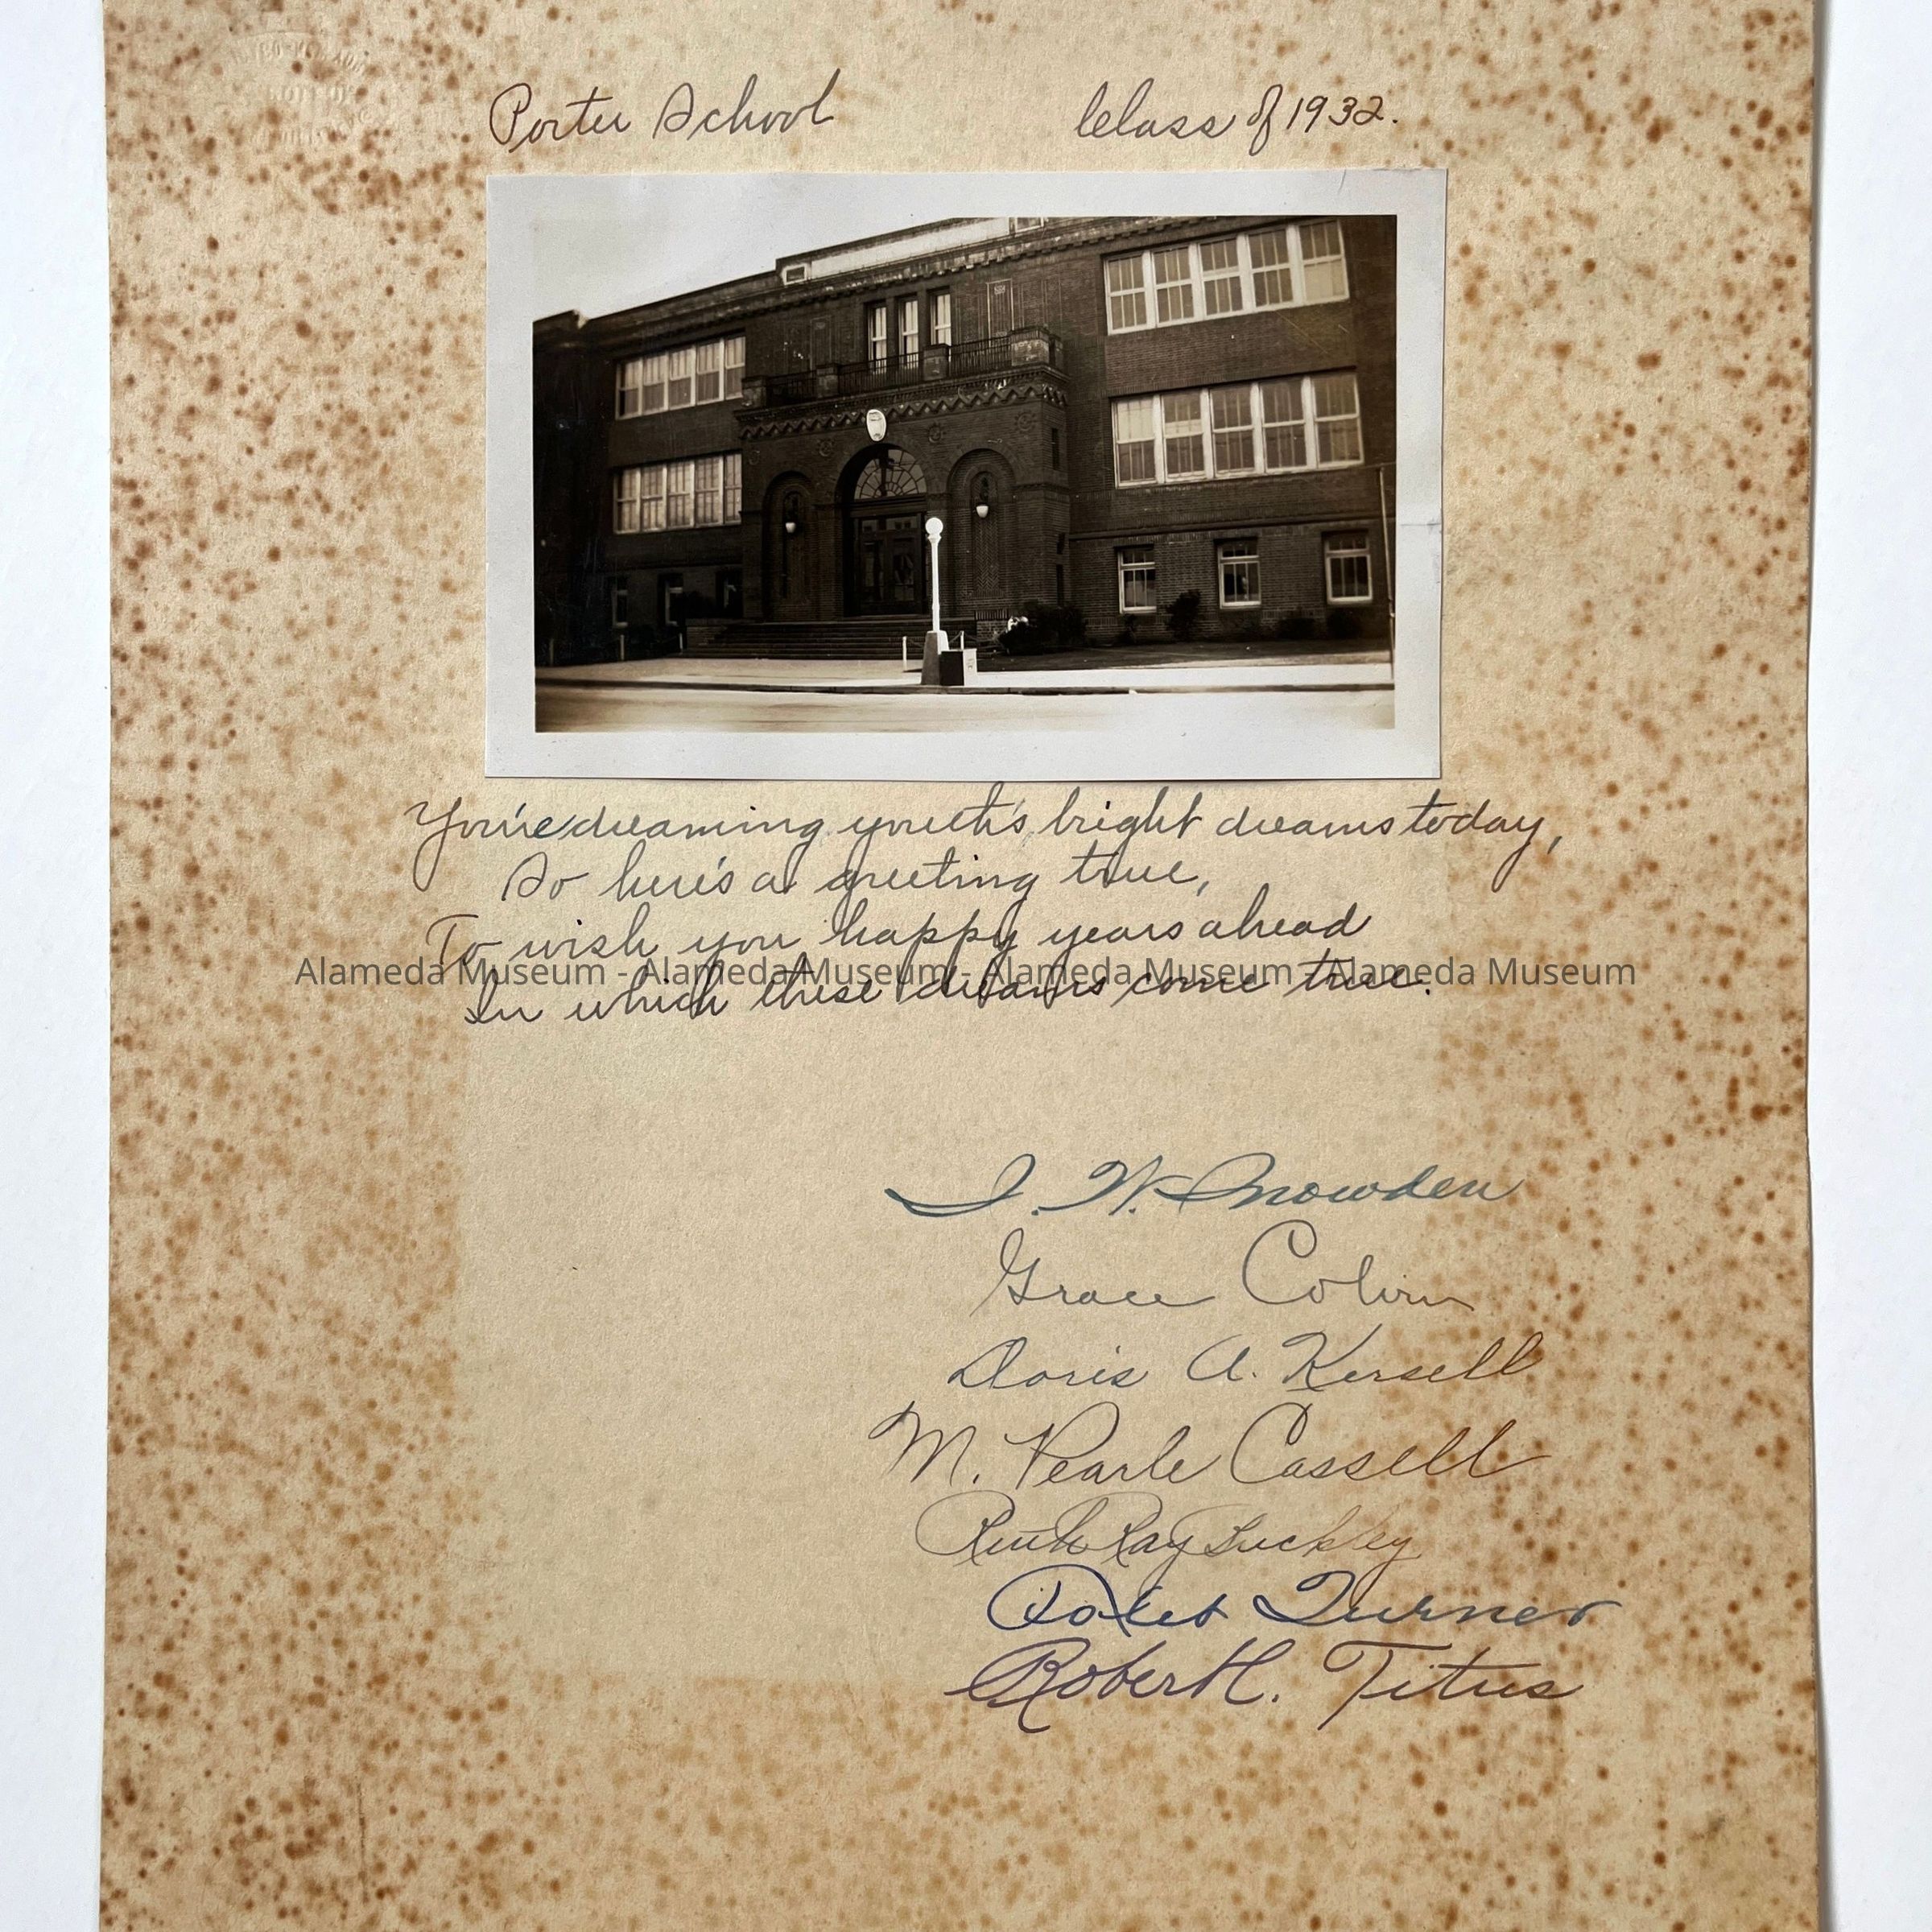 Porter School Class of 1932.
You're dreaming youth's bright dreams today,
So here's a greeting true,
To wish you happy years ahead
Alameda Museum - Alameda Museum - Alameda Museum - Alameda Museum
In which these dreams come true.
I. W. Snowden
Grace Colvin
Doris A. Kersell
M. Pearle Cassell
Ruth Ray
Turner
Robert H. Titus